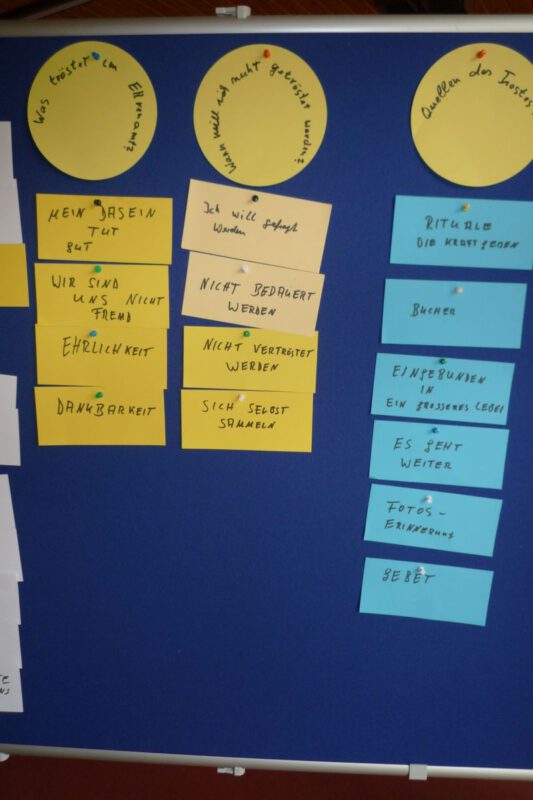 Was tröstet im
Ehrenamt?
MEIN DASEIN
TUT
GUT
WIR SIND
UNS NICHT
FREMD
EHRLICHKEIT
DANKBARKEIT
Wann will ich nicht getröstet
werden?
Ich will gefragt
werden
NICHT BEDAUERT
WERDEN
NICHT VERTRÖSTET
WERDEN
SICH SELBST
SAMMELN
Quellen des Trostes
RITUALE
DIE KRAFT GEBEN
BÜCHER
EINGEBUNDEN
IN
EIN GRÖSSERES
ES GEHT
WEITER
FOTOS -
ERINNERUNG
GEBET